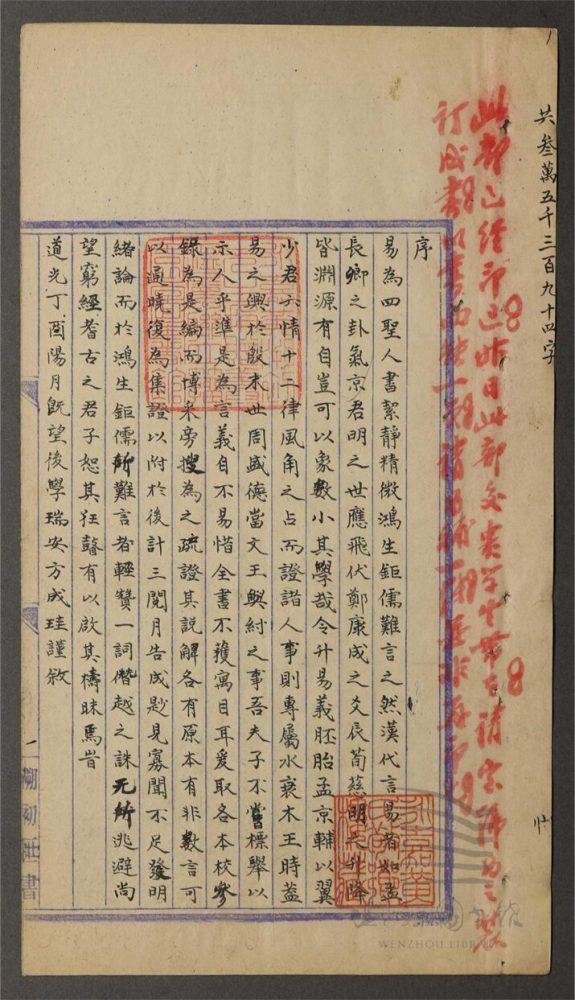 共叁萬五千三百九十四字
序
易為四聖人書絜靜精微鴻生鉅儒難言之然漢代言易者如孟
長卿之卦氣京君明之世應飛伏鄭康成之爻辰荀慈明之升降
皆淵源有自豈可以象數小其學哉令升易義胚胎孟京輔以翼
少君六情十二律風角之占而證諸人事則專屬水衰木王時蓋
易之興於殷末世周盛德當文王與紂之事吾夫子不嘗標舉以
示人乎準是為言義自不易惜全書不獲寓目耳爰取各本校參
錄為是編而博采旁搜為之疏證其說解各有原本有非數言可
以通曉復為集證以附於後計三閱月告成尟見寡聞不足發明
緒論而於鴻生鉅儒所難言者輕贊一詞僭越之誅无所逃避尚
望窮經耆古之君子恕其狂瞽有以啟其檮昧焉旹
道光丁酉陽月旣望後學瑞安方成珪謹敘
WENZHOU LIBRARY